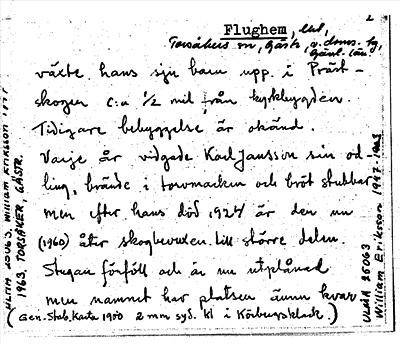 2
Flughem, bel,
Torsåkers sn, Gästr. v. doms. hg,
Gävl. län
växte hans sju barn upp. i Präst-
skogen c:a 1/2 mil från kyrkbygden.
Tidigare bebyggelse är okänd.
Varje år vidgade Karl Jansson sin od-
ling, brände i tovmarken och bröt stubbar
men efter hans död 1924 är den nu
(1960) åter skogbevuxen till större delen.
Stugan förföll och är nu utplånad
men namnet har platsen ännu kvar
(Gen. Stab. Karta 1900 2 mm syd. kl i Körbergsklack.)
1963, TORSÅKER, GÄSTR.
ULMA 25063
William Eriksson